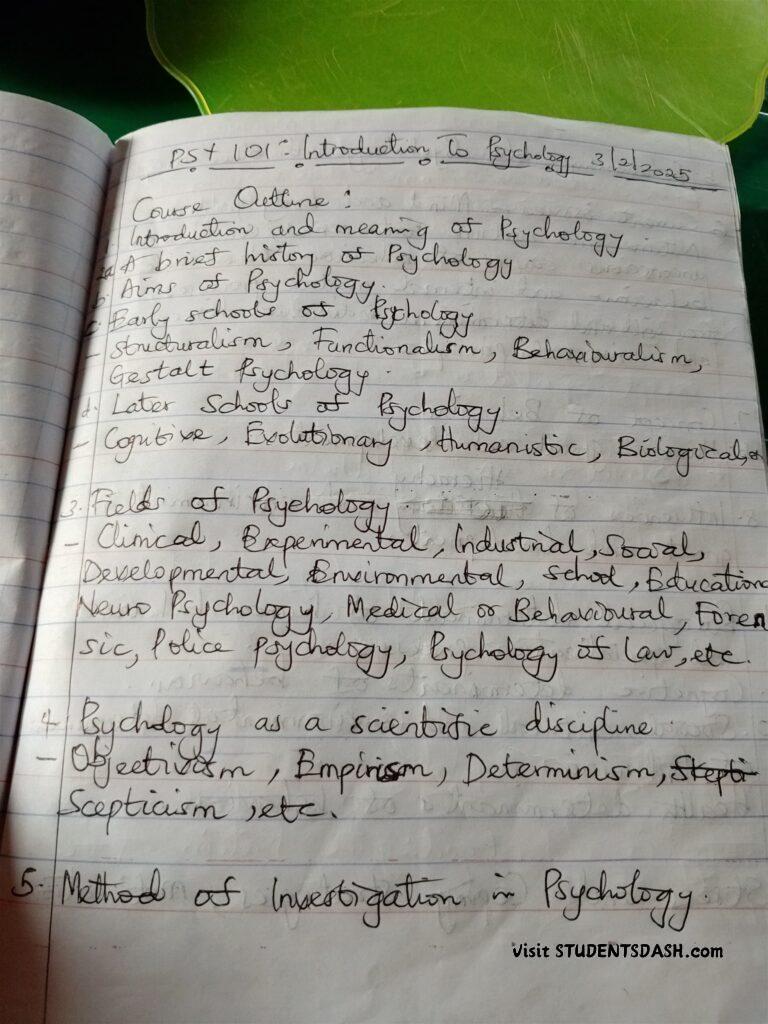 PSY 101: Introduction To Psychology 3/2/2025
Course Outline:
1. Introduction and meaning of Psychology.
2a. A brief history of Psychology
b. Aims of Psychology.
c. Early schools of Psychology
- Structuralism, Functionalism, Behaviouralism,
Gestalt Psychology.
d. Later Schools of Psychology.
- Cognitive, Evolutionary, Humanistic, Biological,
3. Fields of Psychology
- Clinical, Experimental, Industrial, Social,
Developmental, Environmental, School, Education
Neuro Psychology, Medical or Behavioural, Foren
sic, Police psychology, Psychology of law, etc.
4. Psychology as a scientific discipline.
- Objectivism, Empirism, Determinism, Scepti
Scepticism, etc.
5. Method of Investigation in Psychology.
Visit STUDENTSDASH.com